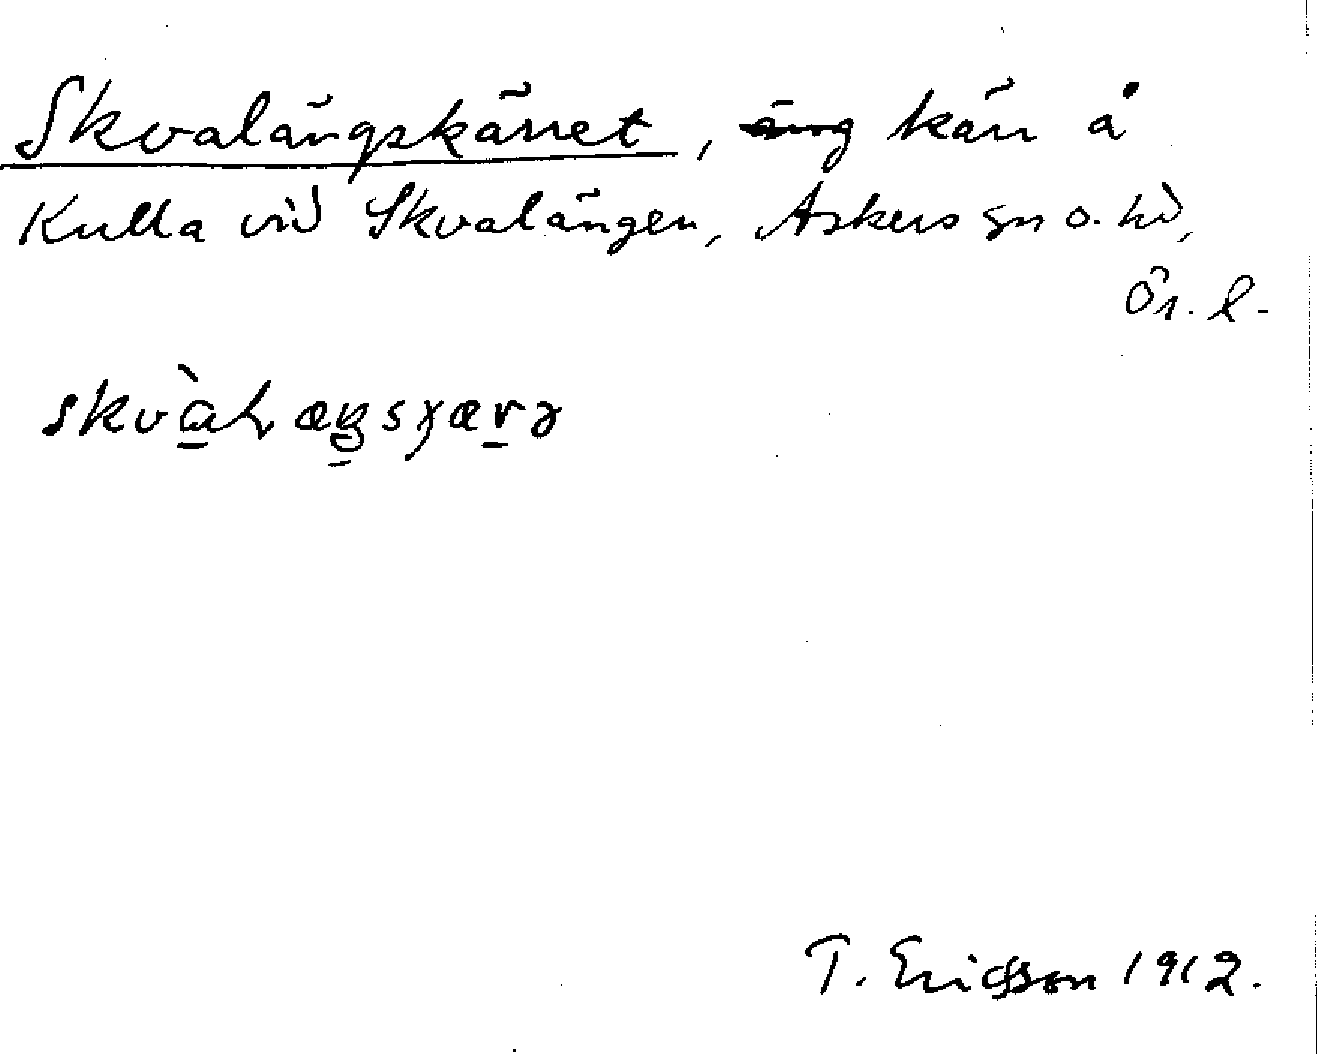 Skvalängskärret, äng kärr å
Kulla vid Skvalängen, Askers sn o. hd,
Ör. l.
T. Ericsson 1912.